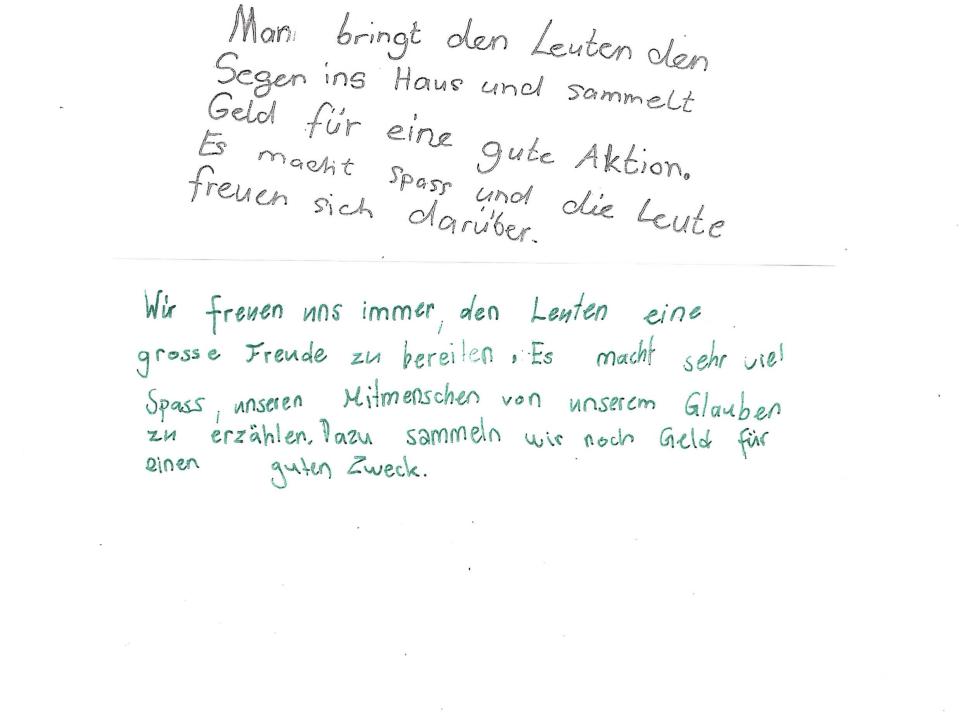 Man bringt den Leuten den
Segen ins Haus und sammelt
Geld für eine gute Aktion.
Es macht spass und die Leute
freuen sich darüber.
Wir freuen uns immer, den Leuten eine
grosse Freude zu bereiten. Es macht sehr viel
Spass, unseren Mitmenschen von unserem Glauben
zu erzählen. Dazu sammeln wir noch Geld für
einen guten Zweck.